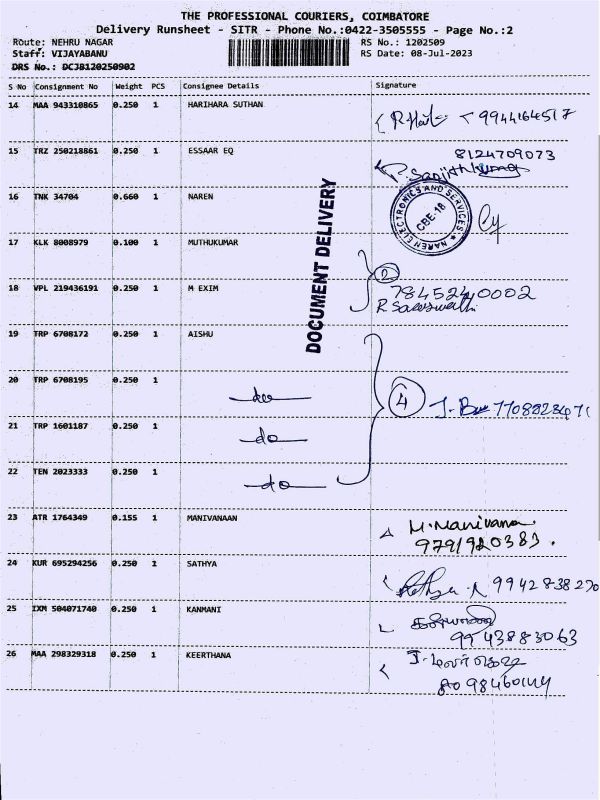 THE PROFESSIONAL COURIERS, COIMBATORE
Delivery Runsheet - SITR - Phone No.:0422-3505555 - Page No.:2
Route: NEHRU NAGAR RS No.: 1202509
Staff: VIJAYABANU RS Date: 08-Jul-2023
DRS No.: DCJB120250902
S No Consignment No Weight PCS Consignee Details Signature
14 MAA 943310865 0.250 1 HARIHARA SUTHAN
9944164517
15 TRZ 250218861 0.250 1 ESSAAR EQ 8124709073
P. Sanjithkumar
16 TNK 34704 0.660 1 NAREN
NAREN ELECTRONICS AND SERVICES
CBE-18
DOCUMENT DELIVERY
17 KLK 8008979 0.100 1 MUTHUKUMAR
2
18 VPL 219436191 0.250 1 M EXIM 7845240002
R Saraswathi
19 TRP 6708172 0.250 1 AISHU
20 TRP 6708195 0.250 1 do 4 7708828471
21 TRP 1601187 0.250 1 do
22 TEN 2023333 0.250 1 do
23 ATR 1764349 0.155 1 MANIVANAAN M. Manivana
9791920383.
24 KUR 695294256 0.250 1 SATHYA
Sathya. R 9942838270
25 IXM 504071740 0.250 1 KANMANI கண்மணி
9943883063
26 MAA 298329318 0.250 1 KEERTHANA